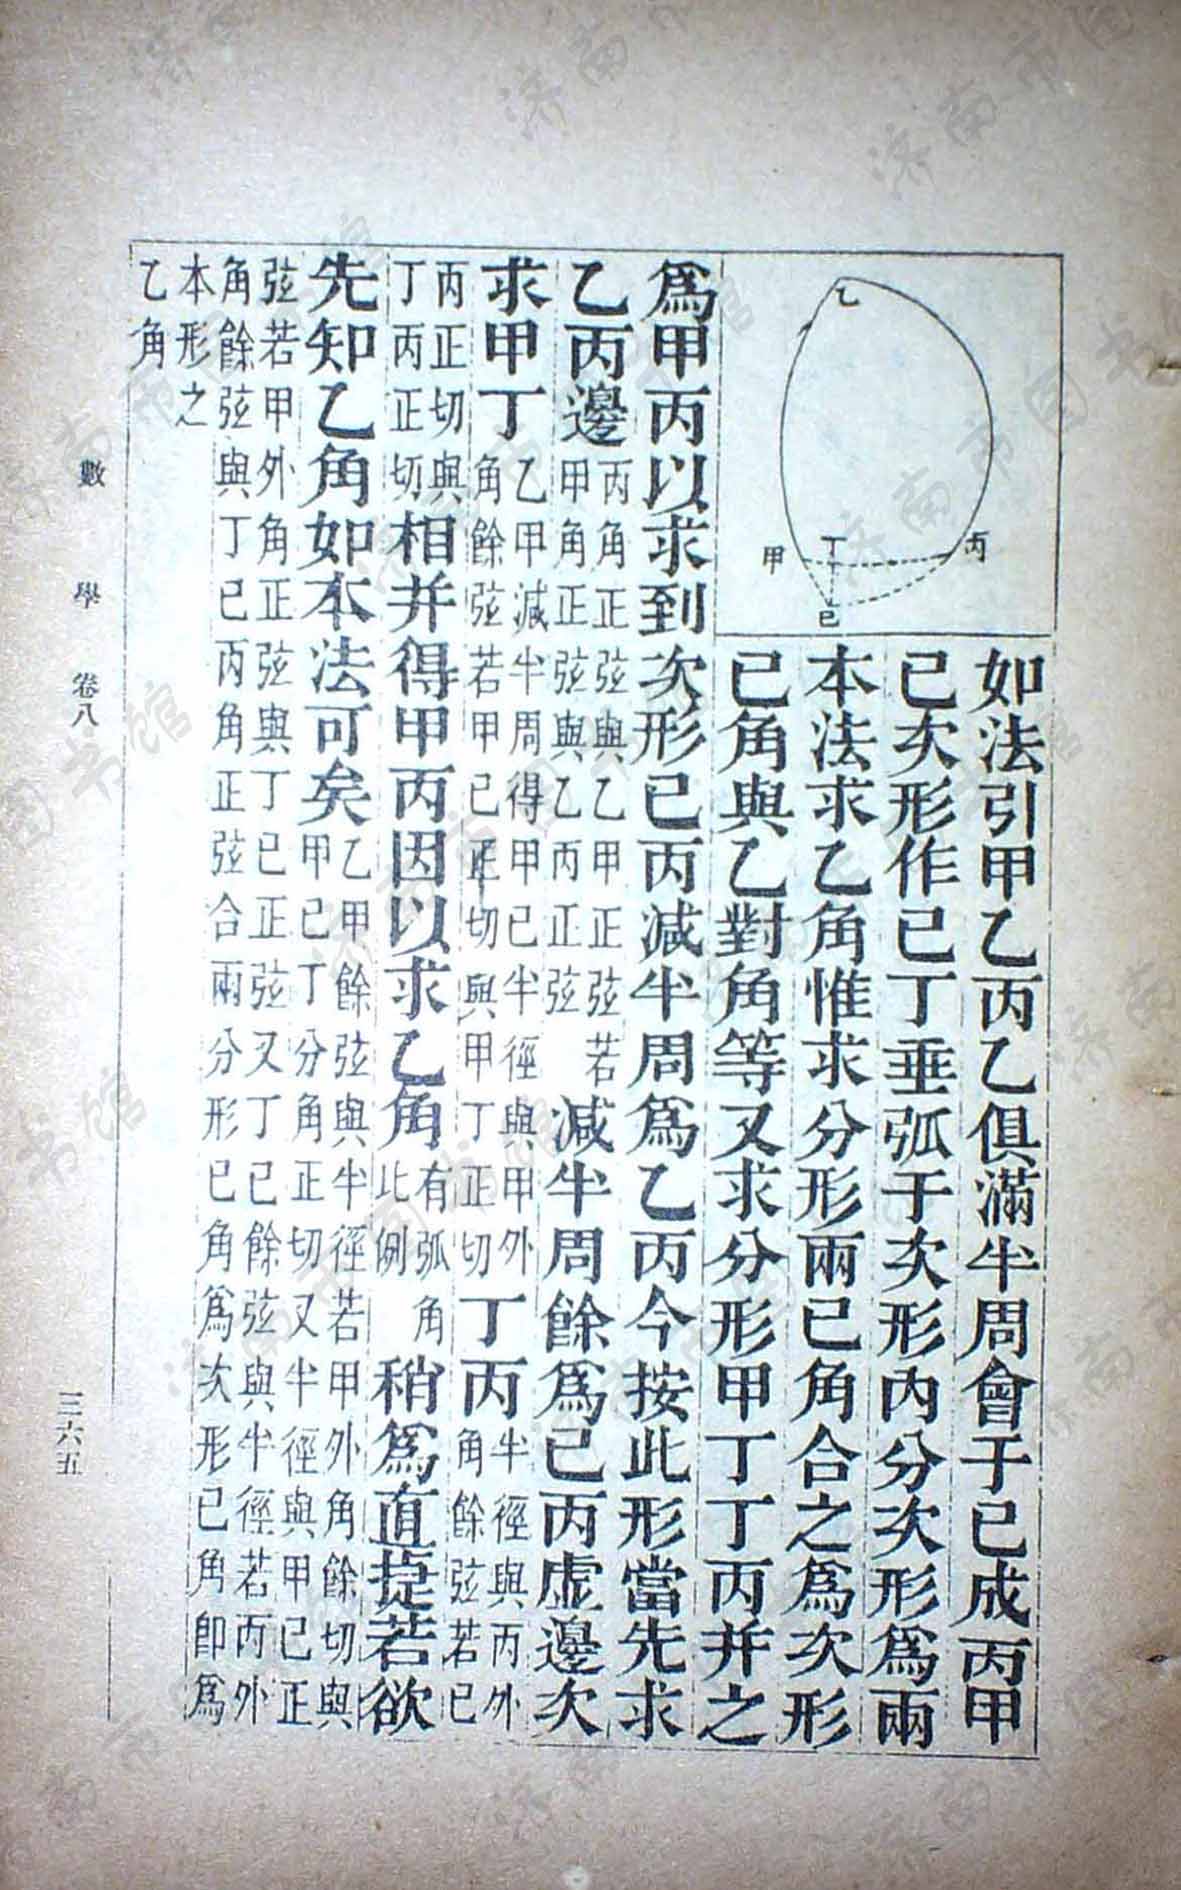 乙
甲
丁
丙
己
如法引甲乙丙乙俱滿半周會于己成丙甲
己次形作己丁垂弧于次形內分次形爲兩
本法求乙角惟求分形兩己角合之爲次形
己角與乙對角等又求分形甲丁丁丙并之
爲甲丙以求到次形己丙減半周爲乙丙今按此形當先求
乙丙邊丙角正弦與乙甲正弦若甲角正弦與乙丙正弦減半周餘爲己丙虛邊次
求甲丁乙甲減半周得甲己半徑與甲外角餘弦若甲己正切與甲丁正切丁丙半徑與丙外角餘弦若己
丙正切與丁丙正切相并得甲丙因以求乙角有弧角此例稍爲直捷若欲
先知乙角如本法可矣乙甲餘弦與半徑若甲外角餘切與甲己丁分角正切又半徑與甲己正
弦若甲外角正弦與丁己正弦又丁己餘弦與半徑若丙外角餘弦與丁己丙角正弦合兩分形己角爲次形己角即爲
本形之乙角
數學 卷八
三六五